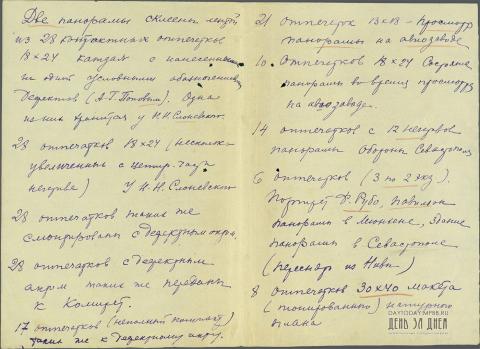 Две панорамы склеены лентой
из 28 контактных отпечатков
18х24 каждая с нанесенными
на одной условными обозначениями
дефектов (А.Г. Поповым). Одна
из них хранится у Н.Н. Слоневского.
28 отпечатков 18х24 (несколько
увеличенных с центр. части
негатива) У Н.Н. Слоневского
28 отпечатков таких же
смонтированы с дефектным
28 отпечатков с дефектным
такие же переданы
к Комитет.
17 отпечатков (неполный комплект)
таких же к дефектному
21 отпечаток 13х18 - Просмотр
панорамы на автозаводе.
10 Отпечатков 18х24
панорамы во время просмотра
на автозаводе.
14 отпечатков с 12 негативов
панорамы Обороны Севастополя
6 отпечатков (3 по 2 экз).
Портрет Ф. Рубо, павильон
панорамы в Мюнхене, Здание
панорамы в Севастополе
(Пересняр из Нивы)
8 отпечатков 30х40 макета
(тонированного) натурного
плана
DAYTODAY.MFBB.RU
ДЕНЬ ЗА ДНЕМ